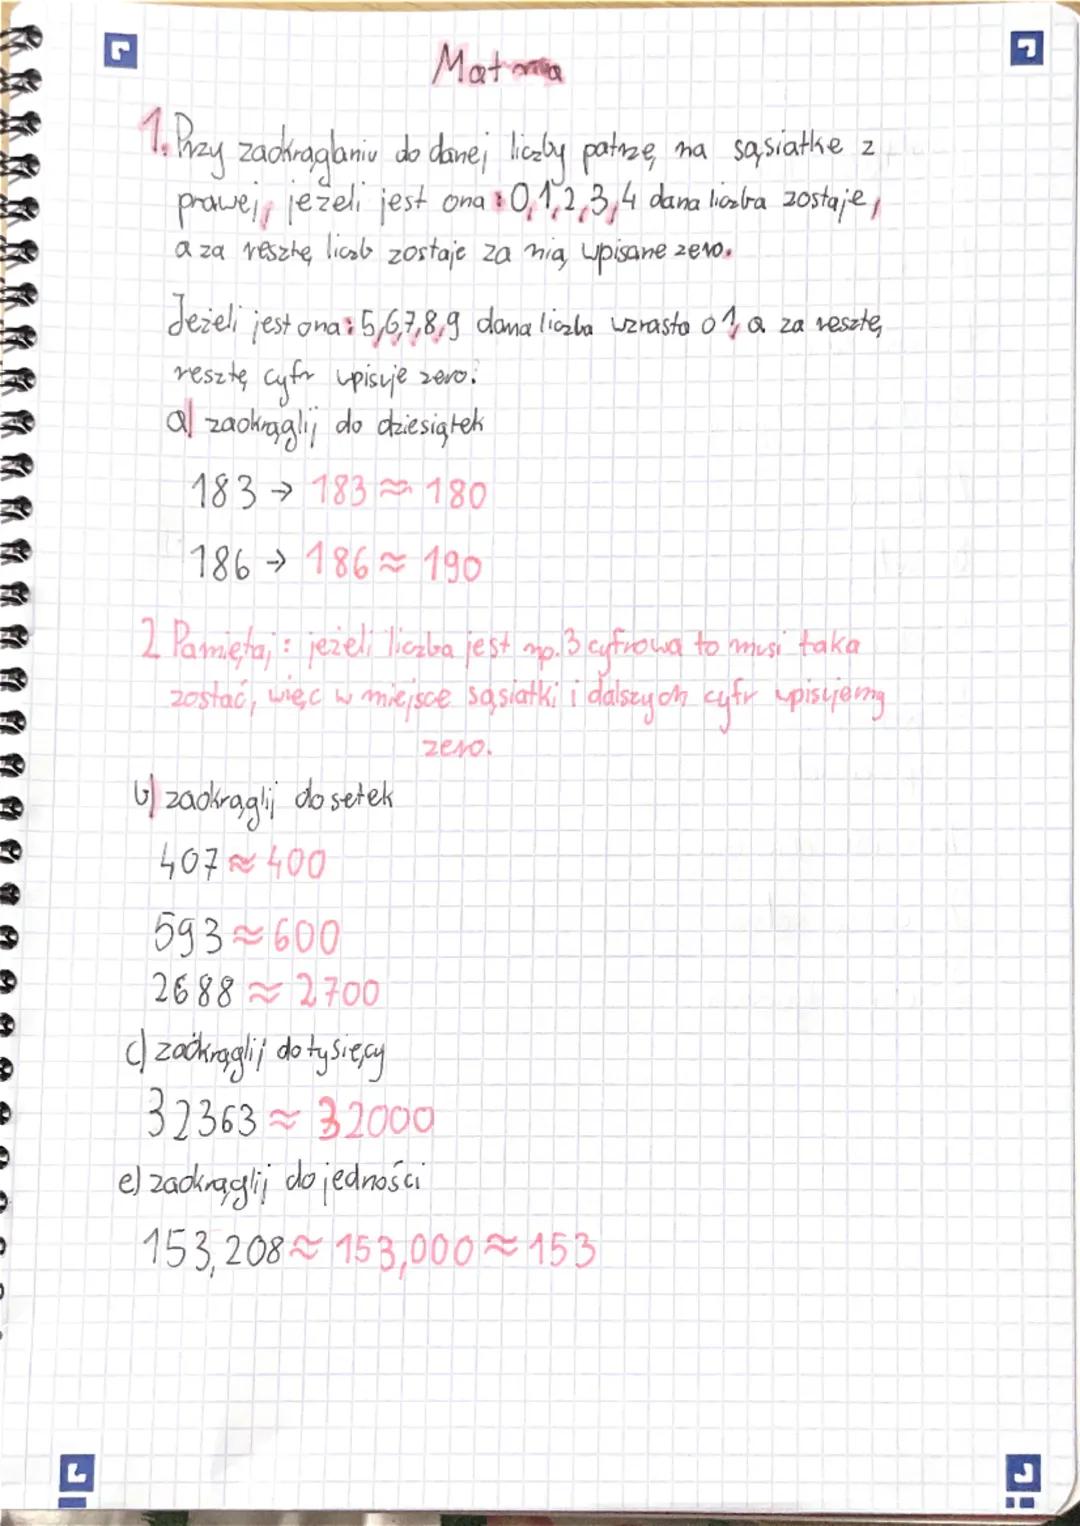 Matma
1. Przy zaokrąglaniu do danej liczby patrzę na sąsiatkę z
prawej, jeżeli jest ona: 0,1,2,3,4 dana liczba zostaje,
a za resztę liczb zostaje za nią wpisane zero.
Jeżeli jest ona: 5,6,7,8,9 dana liczba wzrasta o 1, a za resztę
resztę cyfr wpisuje zero.
a) zaokrąglij do dziesiątek
183 → 183 ≈ 180
186 → 186 ≈ 190
2 Pamiętaj: jeżeli liczba jest np. 3 cyfrowa to musi taka
zostać, więc w miejsce sąsiatki i dalszych cyfr wpisujemy
zero.
b) zaokrąglij do setek
407 ≈ 400
593 ≈ 600
2688 ≈ 2700
c) zaokrąglij do tysięcy
32363 ≈ 32000
e) zaokrąglij do jedności
153,208 ≈ 153,000 ≈ 153